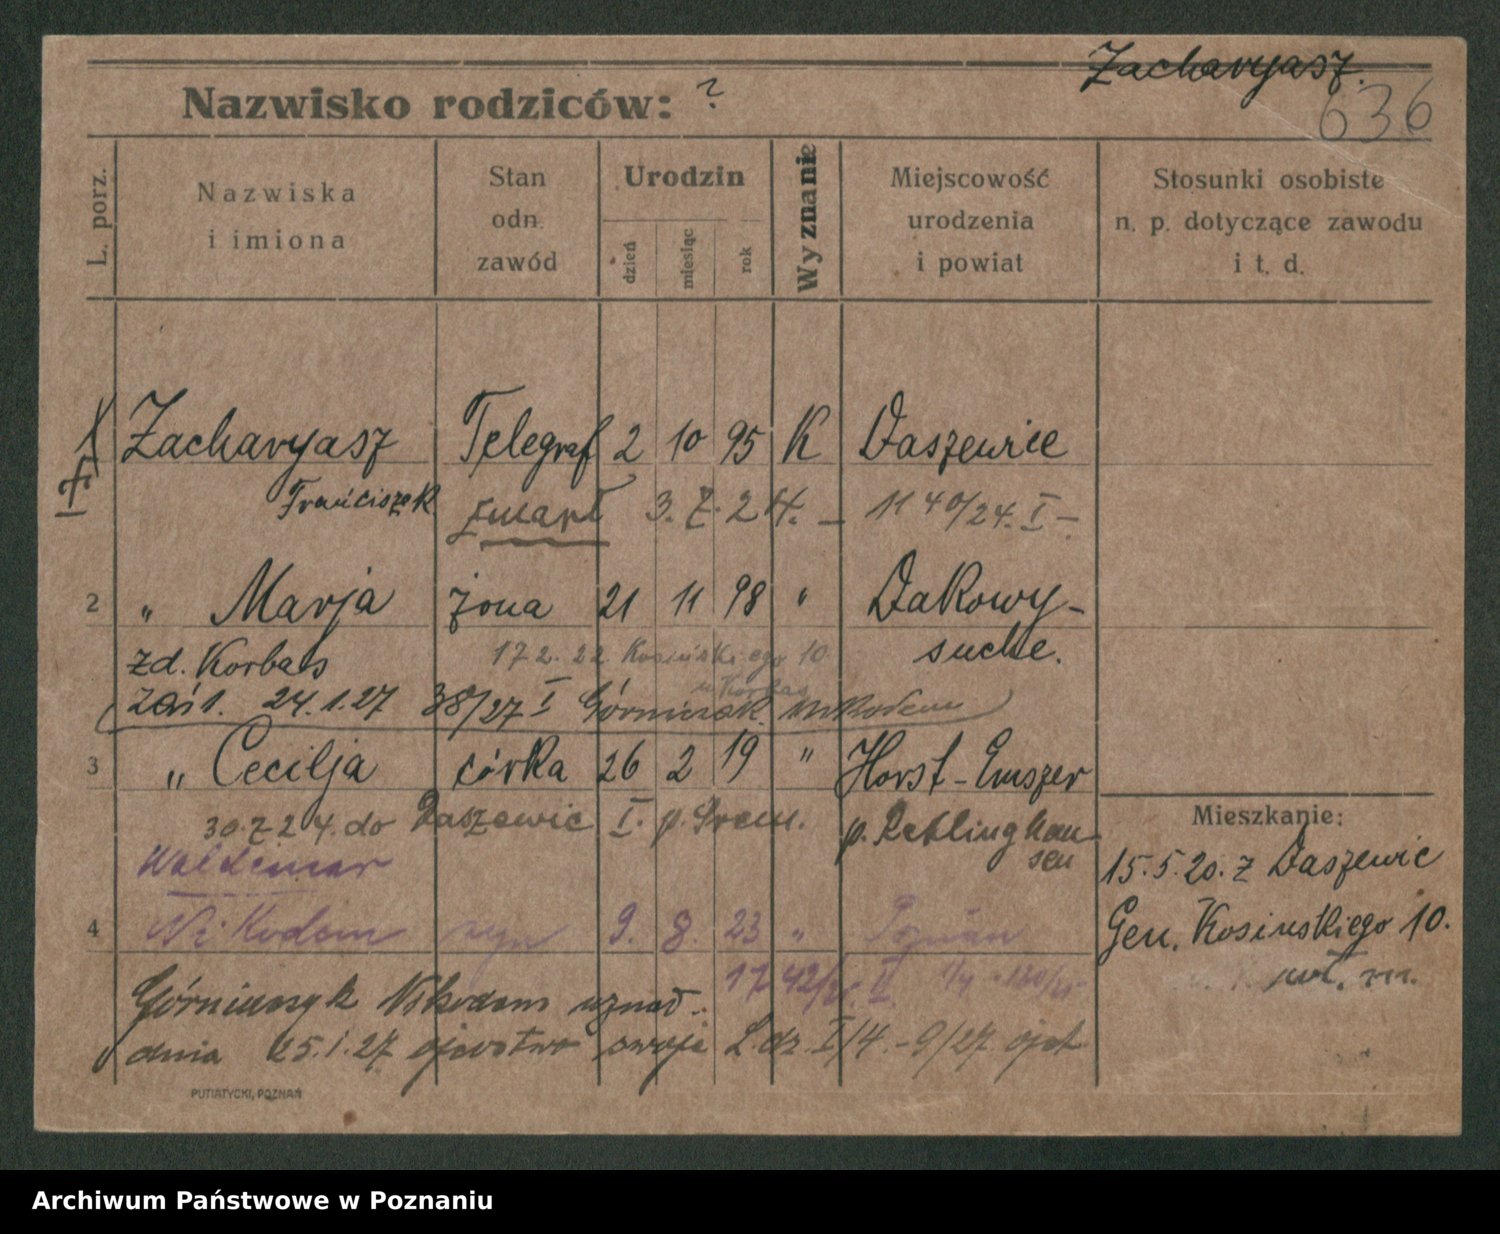 Zacharyasz.
636
Nazwisko rodziców: ?
L. porz.
Nazwiska i imiona
Stan odn. zawód
Urodzin
dzień miesiąc rok
Wyznanie
Miejscowość urodzenia i powiat
Stosunki osobiste n. p. dotyczące zawodu i t. d.
Zacharyasz Telegraf 2 10 95 K Daszewice
Franciszek zmarł 3. 7. 24. – 1140/24. I –
2 " Marja żona 21 11 98 " Dakowy-
suche.
zd. Korbas 17 2. 22 Kosińskiego 10
u Korbas
zaśl. 24.1.27 38/27 I Górniczak Nikodem
3 " Cecilja córka 26 2 19 " Horst-Emszer
30.7.24. do Daszewic I. p. Śrem. p. Reklinghausen
Mieszkanie:
15.5.20. z Daszewic
Gen. Kosinskiego 10.
Waldemar
4 Nikodem syn 9. 8. 23 " Poznań
Nikodem uznał
dnia 25.1.27 ojcostwo swoje L.dz. I/14.-9/27.
PUTIATYCKI, POZNAŃ
Archiwum Państwowe w Poznaniu